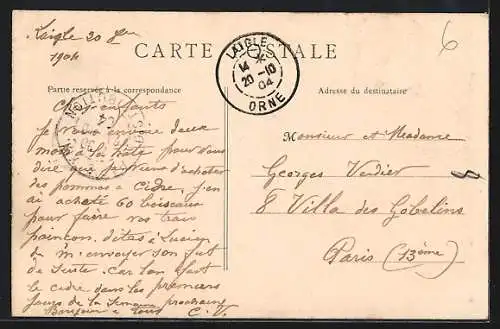 Laigle 20
1904
CARTE POSTALE
LAIGLE
14 *
20 -10
04
ORNE
6
Partie reservée à la correspondance
Adresse du destinataire
Chers enfants
je vous envoie deux
mots à la hâte pour vous
dire que je viens d'acheter
des pommes à cidre, j'en
ai acheté 60 boisseaux
pour faire vos trois
poinçon. dites à Lucien
de m'envoyer son fut
de suite. Car l'on fait
le cidre dans les premiers
jours de la semaine prochaine
Bonjour à tous C. V.
Monsieur et Madame
Georges Verdier
8 Villa des Gobelins
Paris (13ème)